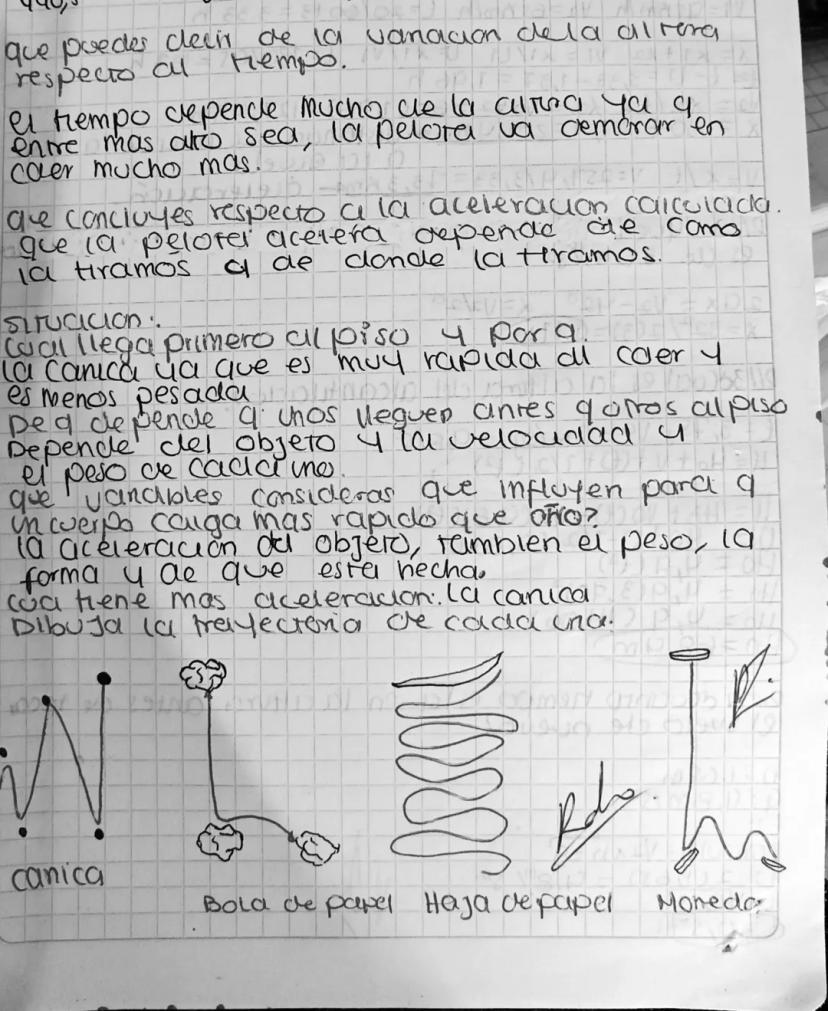 que puedes decir de la variacion de la altura
respecto al tiempo.
el tiempo depende mucho de la altura ya q
entre mas alto sea, la pelota va demorar en
caer mucho mas.
que concluyes respecto a la aceleracion calculada.
que la pelota acelera depende de como
la tiramos y de donde la tiramos.
situacion:
cual llega primero al piso y por q.
la canica ya que es muy rapida al caer y
es menos pesada
De q depende q unos lleguen antes q otros al piso
Depende del objeto y la velocidad y
el peso de cada uno.
que variables consideras que influyen para q
un cuerpo caiga mas rapido que otro?
la aceleración del objeto, tambien el peso, la
forma y de que esta hecha.
cua tiene mas aceleracion: la canica
Dibuja la trayectoria de cada una.
canica
Bola de papel Hoja de papel Moneda.